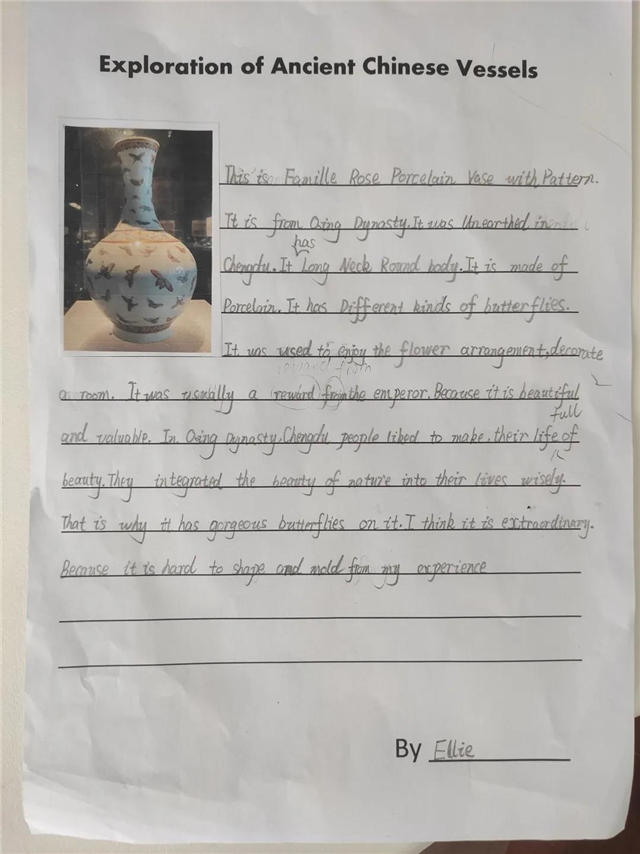 Exploration of Ancient Chinese Vessels
This is Famille Rose Porcelain Vase with Pattern.
It is from Qing Dynasty. It was Unearthed in
has
Chengdu. It Long Neck Round body. It is made of
Porcelain. It has Different kinds of butterflies.
It was used to enjoy the flower arrangement, decorate
a room. It was usually a reward from the emperor. Because it is beautiful
full
and valuable. In Qing Dynasty, Chengdu people liked to make their life of
beauty. They integrated the beauty of nature into their lives wisely.
That is why it has gorgeous butterflies on it. I think it is extraordinary.
Because it is hard to shape and mold from my experience
By Ellie